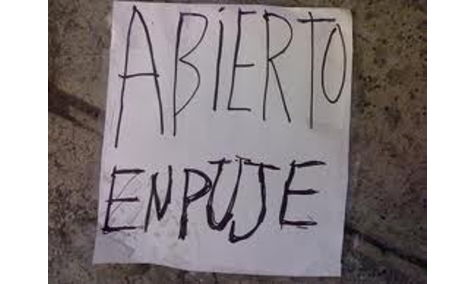 ABiERTO
ENPUJE